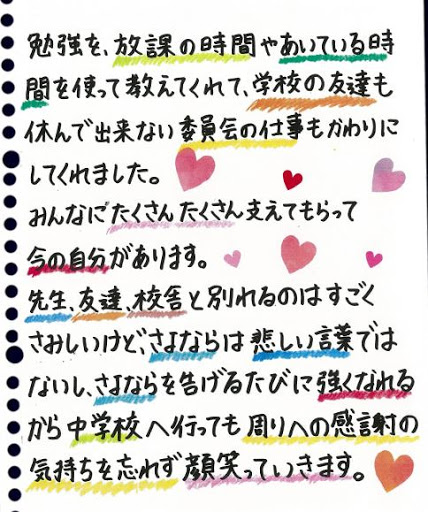 勉強を、放課の時間やあいている時
間を使って教えてくれて、学校の友達も
休んで出来ない委員会の仕事もかわりに
してくれました。
みんなにたくさんたくさん支えてもらって
今の自分があります。
先生、友達、校舎と別れるのはすごく
さみしいけど、さよならは悲しい言葉では
ないし、さよならを告げるたびに強くなれる
から中学校へ行っても周りへの感謝の
気持ちを忘れず顔笑っていきます。